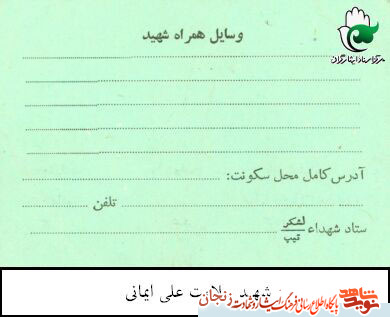 وسایل همراه شهید
مرکز اسناد ایثارگران
آدرس کامل محل سکونت:
تلفن
ستاد شهداء لشکر
تیپ
شهید ولایت علی ایمانی
نوید شاهد
پایگاه اطلاع رسانی فرهنگ ایثار و شهادت زنجان